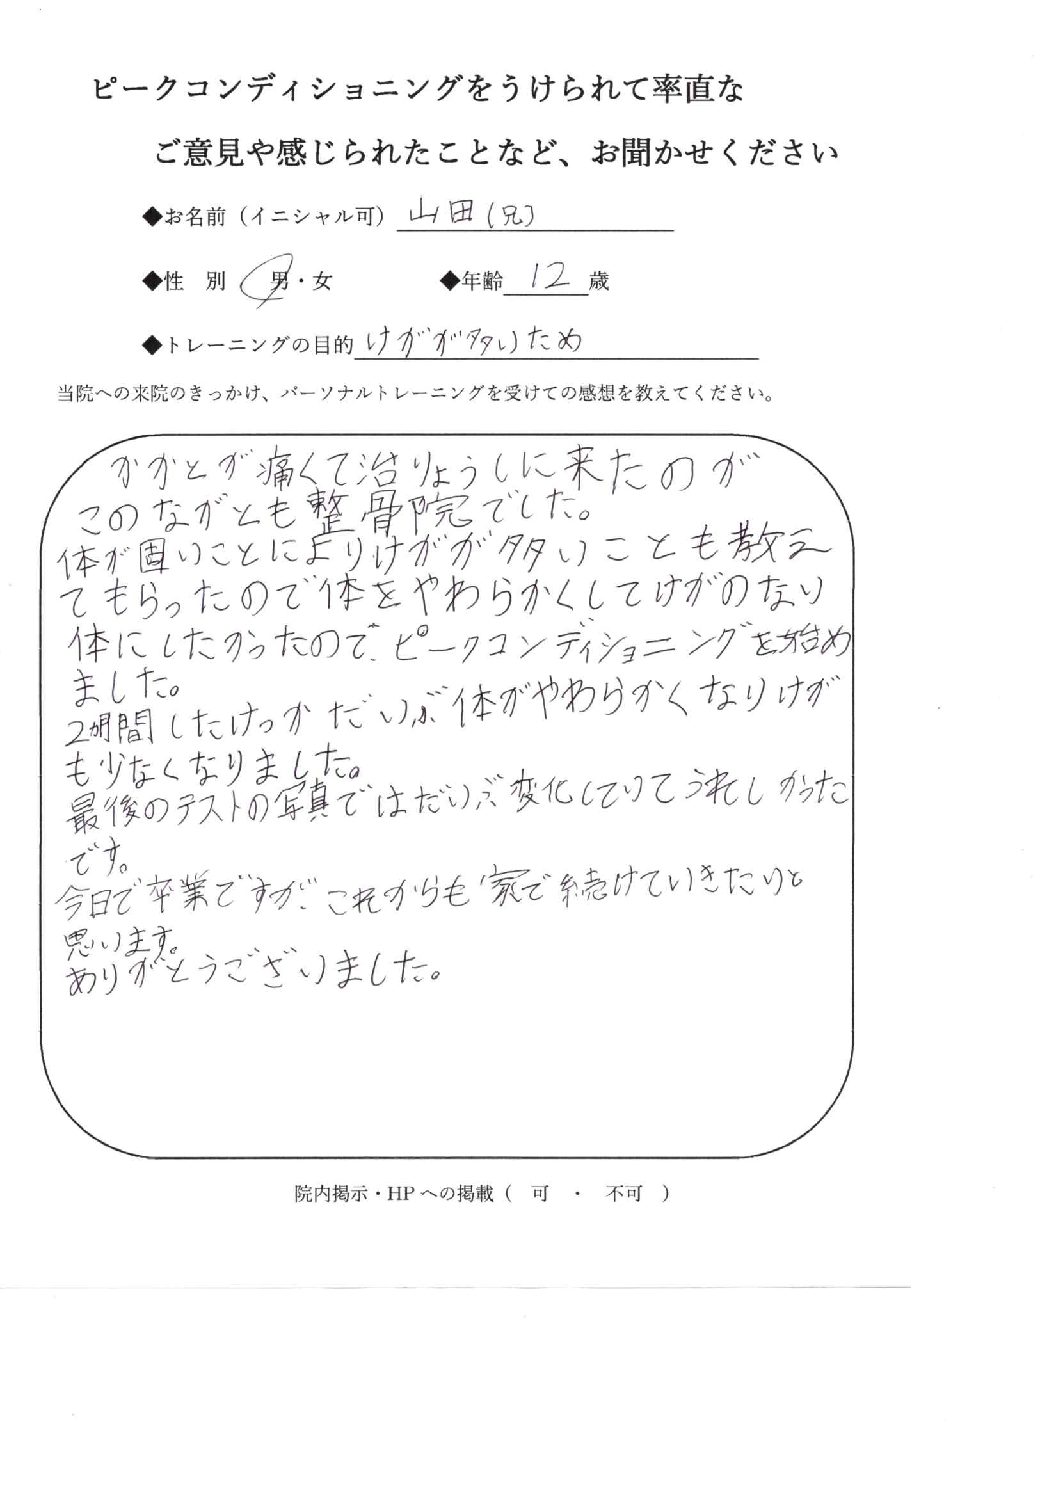 ピークコンディショニングをうけられて率直な
ご意見や感じられたことなど、お聞かせください
◆お名前（イニシャル可） 山田(兄)
◆性　別　男・女　◆年齢 12 歳
◆トレーニングの目的 けがが多いため
当院への来院のきっかけ、パーソナルトレーニングを受けての感想を教えてください。
かかとが痛くて治りょうしに来たのが
このながとも整骨院でした。
体が固いことによりけがが多いことも教え
てもらったので体をやわらかくしてけがのない
体にしたかったので、ピークコンディショニングを始め
ました。
2ヶ月間したけっかだいぶ体がやわらかくなりけが
も少なくなりました。
最後のテストの写真ではだいぶ変化していてうれしかった
です。
今日で卒業ですが、これからも家で続けていきたいと
思います。
ありがとうございました。
院内掲示・HPへの掲載（　可　・　不可　）